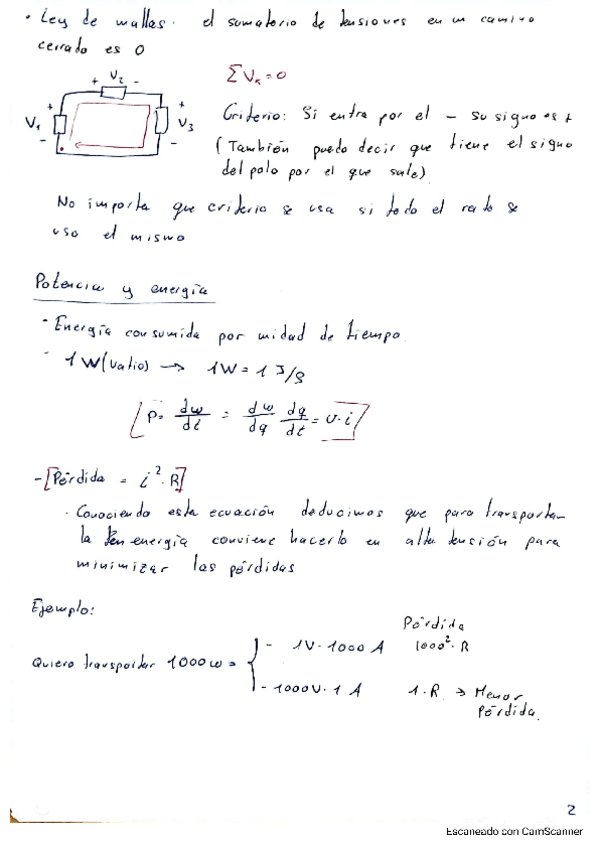 · Ley de mallas. el sumatorio de tensiones en un camino
cerrado es 0
+ V2 -
ΣVₙ=0
+
V1
-
+
V3
-
Criterio: Si entra por el - su signo es +
(También puedo decir que tiene el signo
del polo por el que sale)
No importa que criterio se usa si todo el rato se
usa el mismo
Potencia y energía
- Energía consumida por unidad de tiempo.
- 1 W (vatio) → 1W = 1 J/s
[P = dw/dt = dw/dq dq/dt = v·i]
- [Pérdida = i²·R]
· Conociendo esta ecuación deducimos que para transportar
la energía conviene hacerlo en alta tensión para
minimizar las pérdidas
Ejemplo:
Pérdida
Quiero transportar 1000 w = { - 1V·1000 A 1000²·R
- 1000V·1 A 1·R → Menor
pérdida.
2
Escaneado con CamScanner